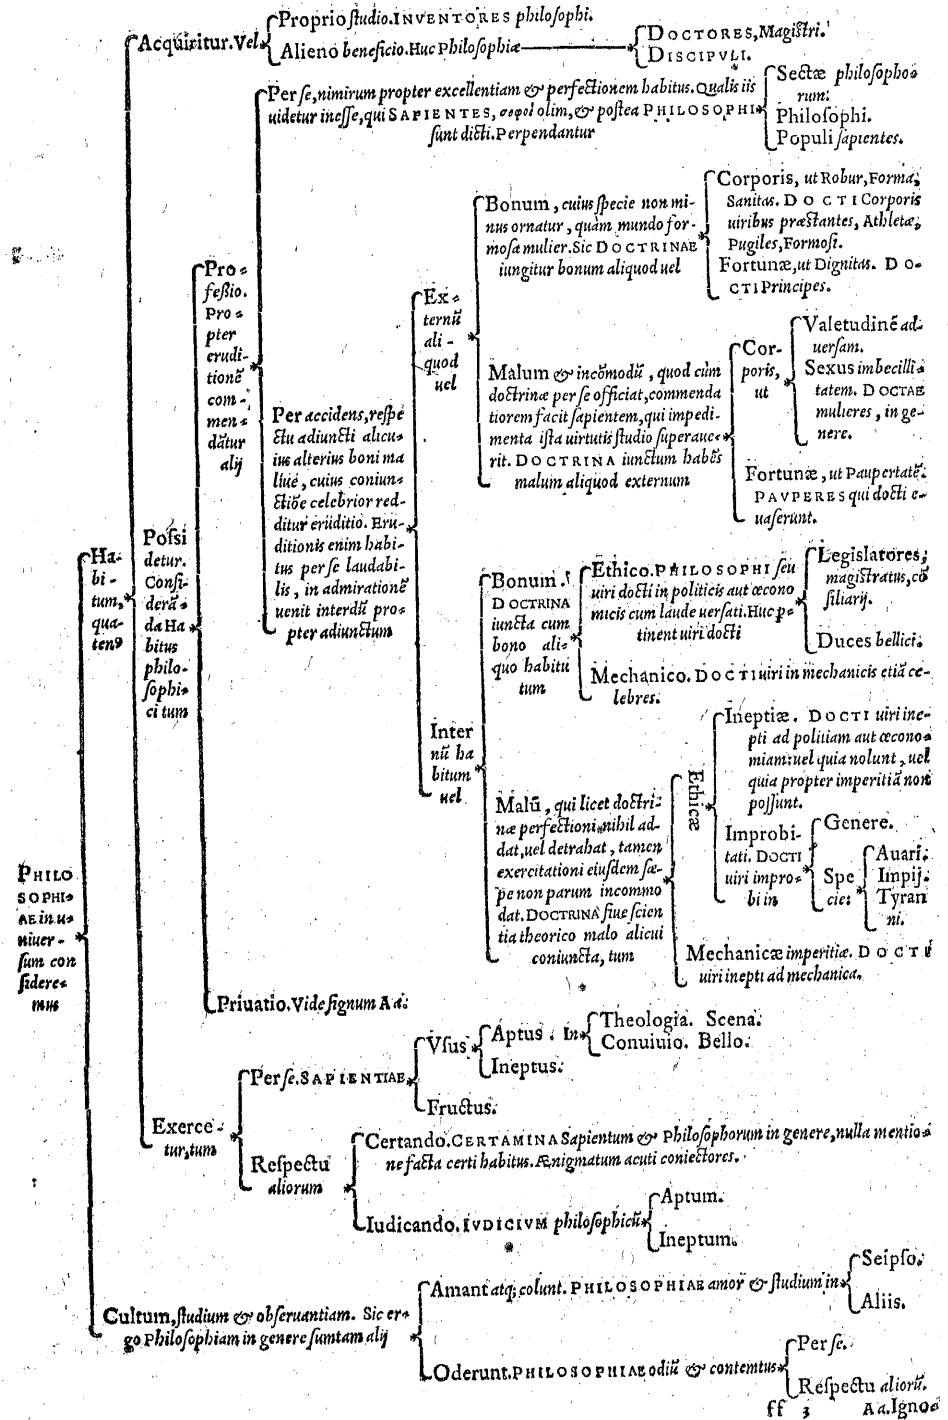 Proprio studio. INVENTORES philosophi.
Acquiritur. Vel
Alieno beneficio. Huc Philosophiæ
DOCTORES, Magistri.
DISCIPVLI.
Per se, nimirum propter excellentiam & perfectionem habitus. Qualis iis
uidetur inesse, qui SAPIENTES, σοφοὶ olim, & postea PHILOSOPHI
sunt dicti. Perpendantur
Sectæ philosopho=
rum.
Philosophi.
Populi sapientes.
Pro=
feßio.
Pro=
pter
erudi-
tionē
com-
men=
dātur
alij
Per accidens, respe
ctu adiuncti alicu-
ius alterius boni ma
liue, cuius coniun-
ctiōe celebrior red-
ditur eruditio. Eru-
ditionis enim habi-
tus per se laudabi-
lis, in admirationē
uenit interdū pro=
pter adiunctum
Ex=
ternū
ali-
quod
uel
Bonum, cuius specie non mi-
nus ornatur, quàm mundo for-
mosa mulier. Sic DOCTRINAE
iungitur bonum aliquod uel
Corporis, ut Robur, Forma,
Sanitas. DOCTI Corporis
uiribus præstantes, Athletæ,
Pugiles, Formosi.
Fortunæ, ut Dignitas. DO-
CTI Principes.
Malum & incōmodū, quod cùm
doctrinæ per se officiat, commenda
tiorem facit sapientem, qui impedi-
menta ista uirtutis studio superaue=
rit. DOCTRINA iunctum habēs
malum aliquod externum
Cor-
poris,
ut
Valetudinē ad-
uersam.
Sexus imbecilli
tatem. DOCTAE
mulieres, in ge-
nere.
Fortunæ, ut Paupertatē.
PAVPERES qui docti e-
uaserunt.
Ha-
bi-
tum,
qua-
tenꝰ
Possi
detur.
Consi-
derā=
da Ha
bitus
philo-
sophi=
ci tum
Inter
nū ha
bitum
uel
Bonum.
DOCTRINA
iuncta cum
bono ali-
quo habitu
tum
Ethico. PHILOSOPHI seu
uiri docti in politicis aut œcono
micis cum laude uersati. Huc p-
tinent uiri docti
Legislatores,
magistratus, cō
siliarij.
Duces bellici.
Mechanico. DOCTI uiri in mechanicis etiā ce-
lebres.
Malū, qui licet doctri-
næ perfectioni nihil ad-
dat, uel detrahat, tamen
exercitationi eiusdem sæ-
pe non parum incommo
dat. DOCTRINA siue scien
tia theorico malo alicui
coniuncta, tum
Ethicæ
Ineptiæ. DOCTI uiri ine-
pti ad politiam aut œcono=
miam: uel quia nolunt, uel
quia propter imperitiā non
possunt.
Improbi-
tati. DOCTI
uiri impro-
bi in
Genere.
Spe
cie:
Auari.
Impij.
Tyran
ni.
Mechanicæ imperitiæ. DOCTI
uiri inepti ad mechanica.
PHILO
SOPHI=
AE in u=
niuer-
sum con
sidere=
mus
Priuatio. Vide signum Aa.
Exerce-
tur, tum
Per se. SAPIENTIAE
Vsus
Aptus. In
Theologia. Scena.
Conuiuio. Bello.
Ineptus.
Fructus.
Respectu
aliorum
Certando. CERTAMINA Sapientum & Philosophorum in genere, nulla mentio=
ne facta certi habitus. Ænigmatum acuti coniectores.
Iudicando. IVDICIVM philosophicū
Aptum.
Ineptum.
Cultum, studium & obseruantiam. Sic er=
go Philosophiam in genere sumtam alij
Amant atq; colunt. PHILOSOPHIAE amor & studium in
Seipso.
Aliis.
Oderunt. PHILOSOPHIAE odiū & contemtus
Per se.
Respectu aliorū.
ff 3 Aa. Igno=